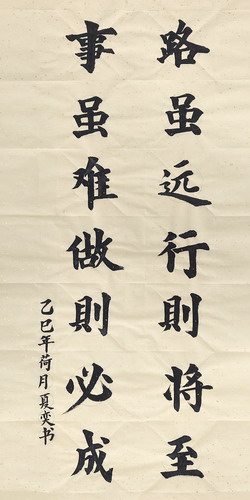 路虽远行則将至
事虽难做則必成
乙巳年荷月夏奕书